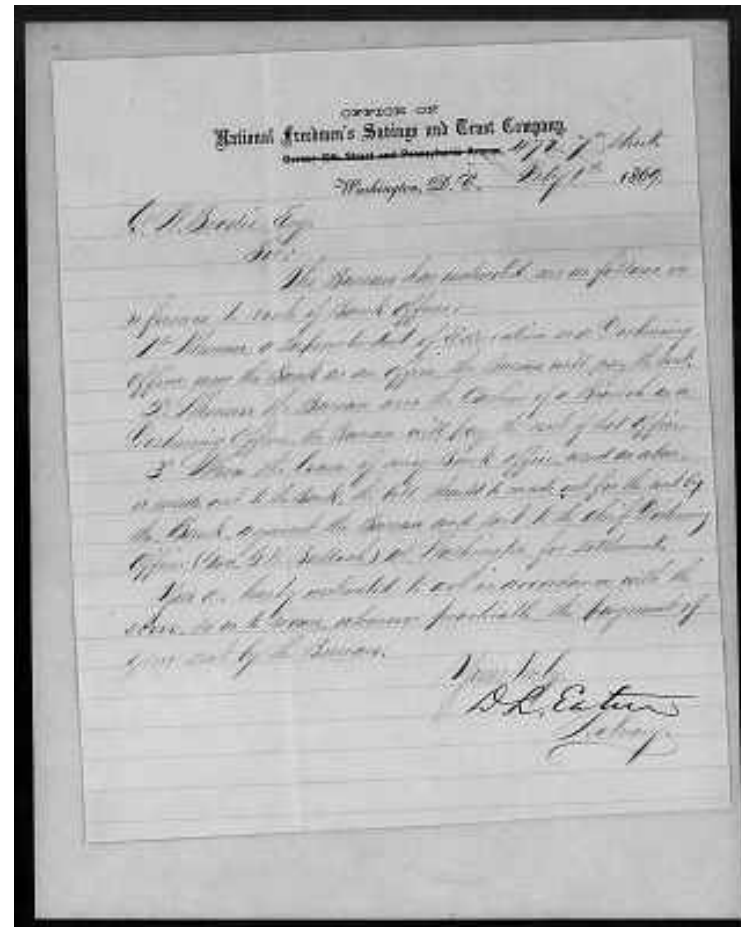 OFFICE OF
National Freedman's Savings and Trust Company,
Corner 19th Street and Pennsylvania Avenue 472 7th Street
Washington, D. C. 1869
Esq
Sir:
The Bureau has instructed me as follows in
reference to rents of Bank Offices.
1st Whenever a Superintendent of Education or a Disbursing
Officer uses the Bank as an office, the Bureau will pay the rent.
2d Whenever the Bureau uses the Cashier of a Branch as a
Disbursing Officer, the Bureau will pay the rent of his Office
3d When the lease of any Bank office used as above
is made out to the Bank, the bill should be made out for the rent by
the Bank, against the Bureau and sent to the Chief Disbursing
Officer, (Genl. Balloch) at Washington for settlement.
You are hereby instructed to act in accordance with the
above, so as to secure, whenever practicable the payment of
your rent by the Bureau.
Yours truly
D. L. Eaton